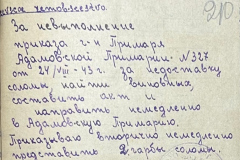 210.
За невыполнение
приказа г-н Примаря
Адамовской Примарии №327
от 24/VIII-43 г. за недоставку
соломы, найти виновных,
составить акт и
направить немедленно
в Адамовскую Примарию.
Приказываю вторично немедленно
представить 2 гарбы соломы.